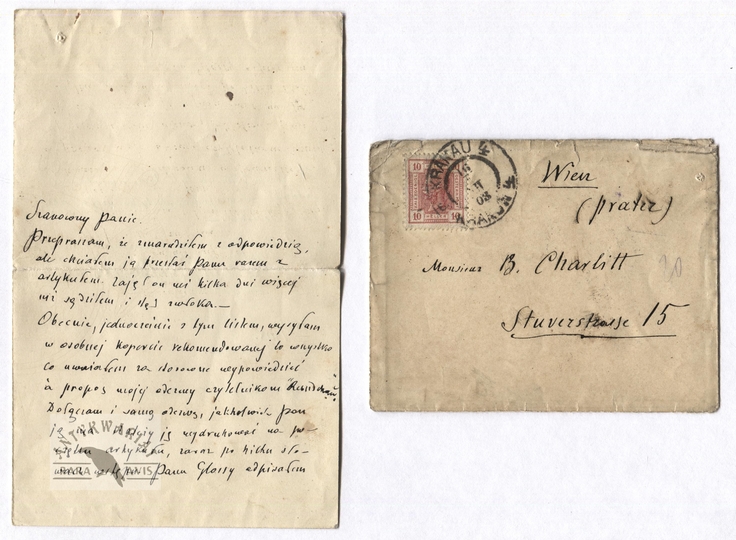 Szanowny Panie.
Przepraszam, że zmarudziłem z odpowiedzią,
ale chciałem ją przesłać Panu razem z
artykułem. Zajął on mi kilka dni więcej
niż sądziłem i stąd zwłoka.—
Obecnie, jednocześnie z tym listem, wysyłam
w osobnej kopercie rekomendowanej to wszystko
co uważałem za stosowne wypowiedzieć
à propos mojej odezwy czytelnikom
Dołączam i samą odezwę, pan
ją wydrukować na
artykułu, zaraz po kilku sło-
Panu Glossy odpisałem
ANTYKWARIAT
RARA AVIS
10 10
10 10
KRAKAU 4
16
II
08
KRAKÓW 4
Wien
(prater)
Monsieur B. Charlitt
Stuverstrasse 15